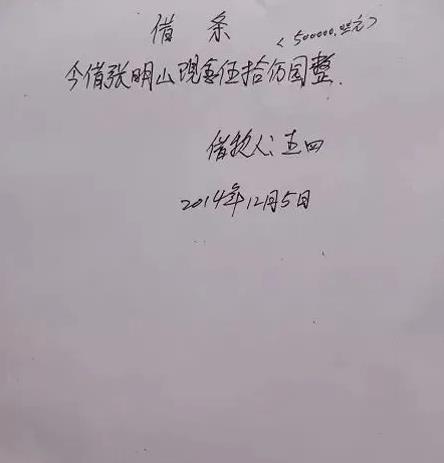 借条
<500000.00元>
今借张明山现金伍拾万圆整.
借款人:王四
2014年12月5日